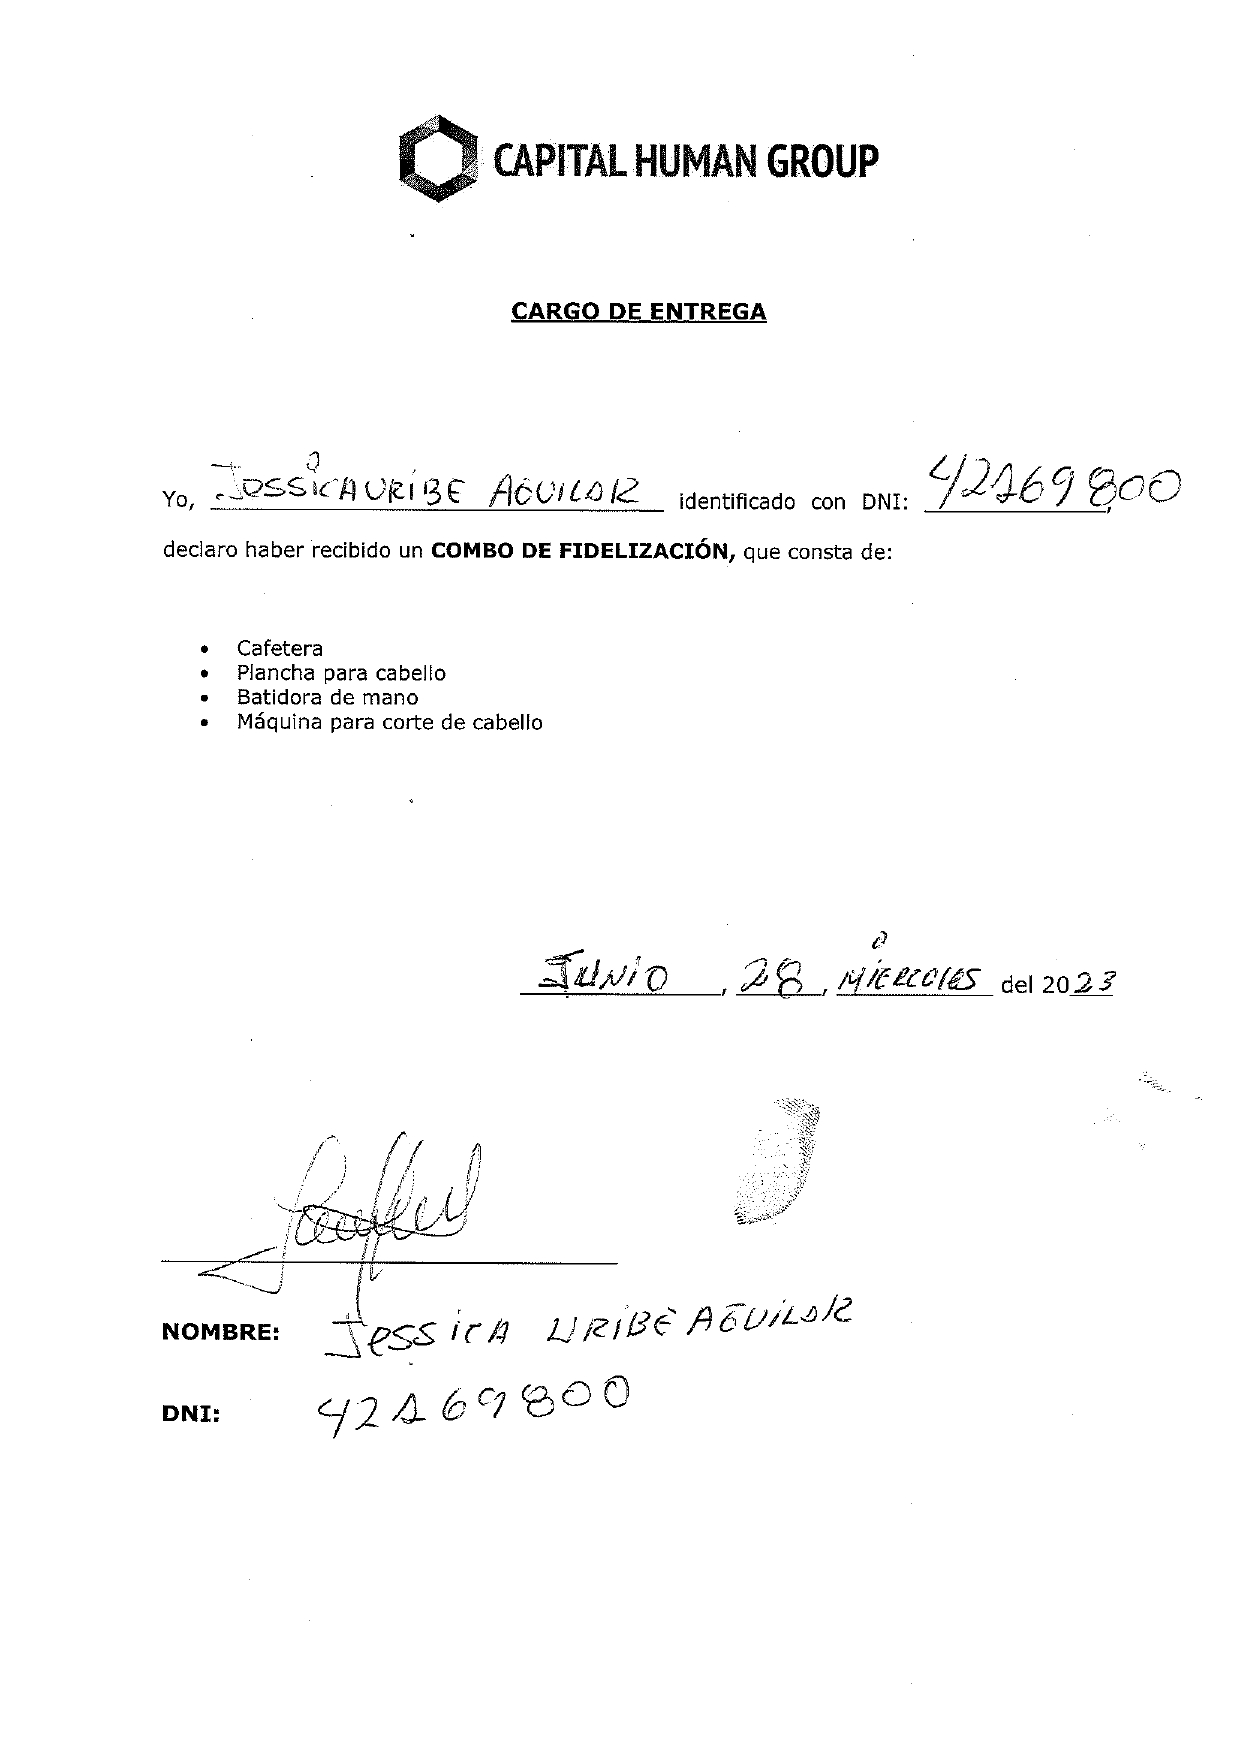 CAPITAL HUMAN GROUP
CARGO DE ENTREGA
Yo, Jessica URIBE AGUILAR identificado con DNI: 42169800
declaro haber recibido un COMBO DE FIDELIZACIÓN, que consta de:
• Cafetera
• Plancha para cabello
• Batidora de mano
• Máquina para corte de cabello
JUNIO, 28, MIERCOLES del 2023
NOMBRE: Jessica URIBE AGUILAR
DNI: 42169800